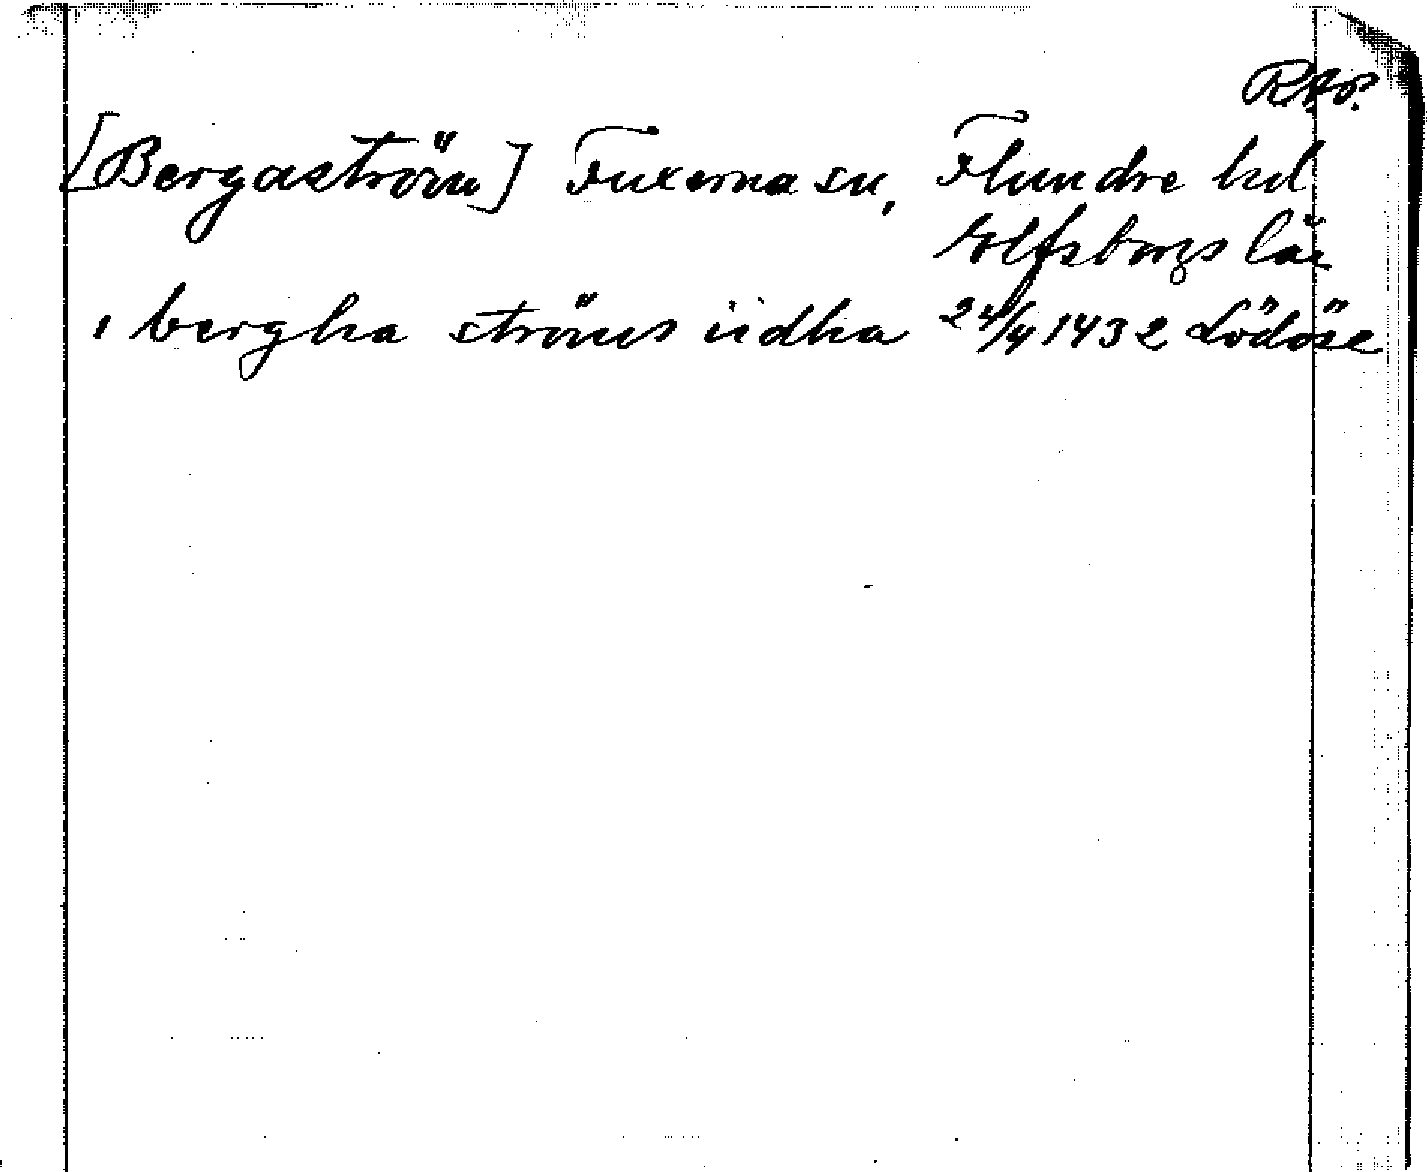 RAp.
[Bergaström] Fuxerna sn, Flundre hd
Elfsborgs län
i bergha ströms iidha 24/4 1432 Lödöse